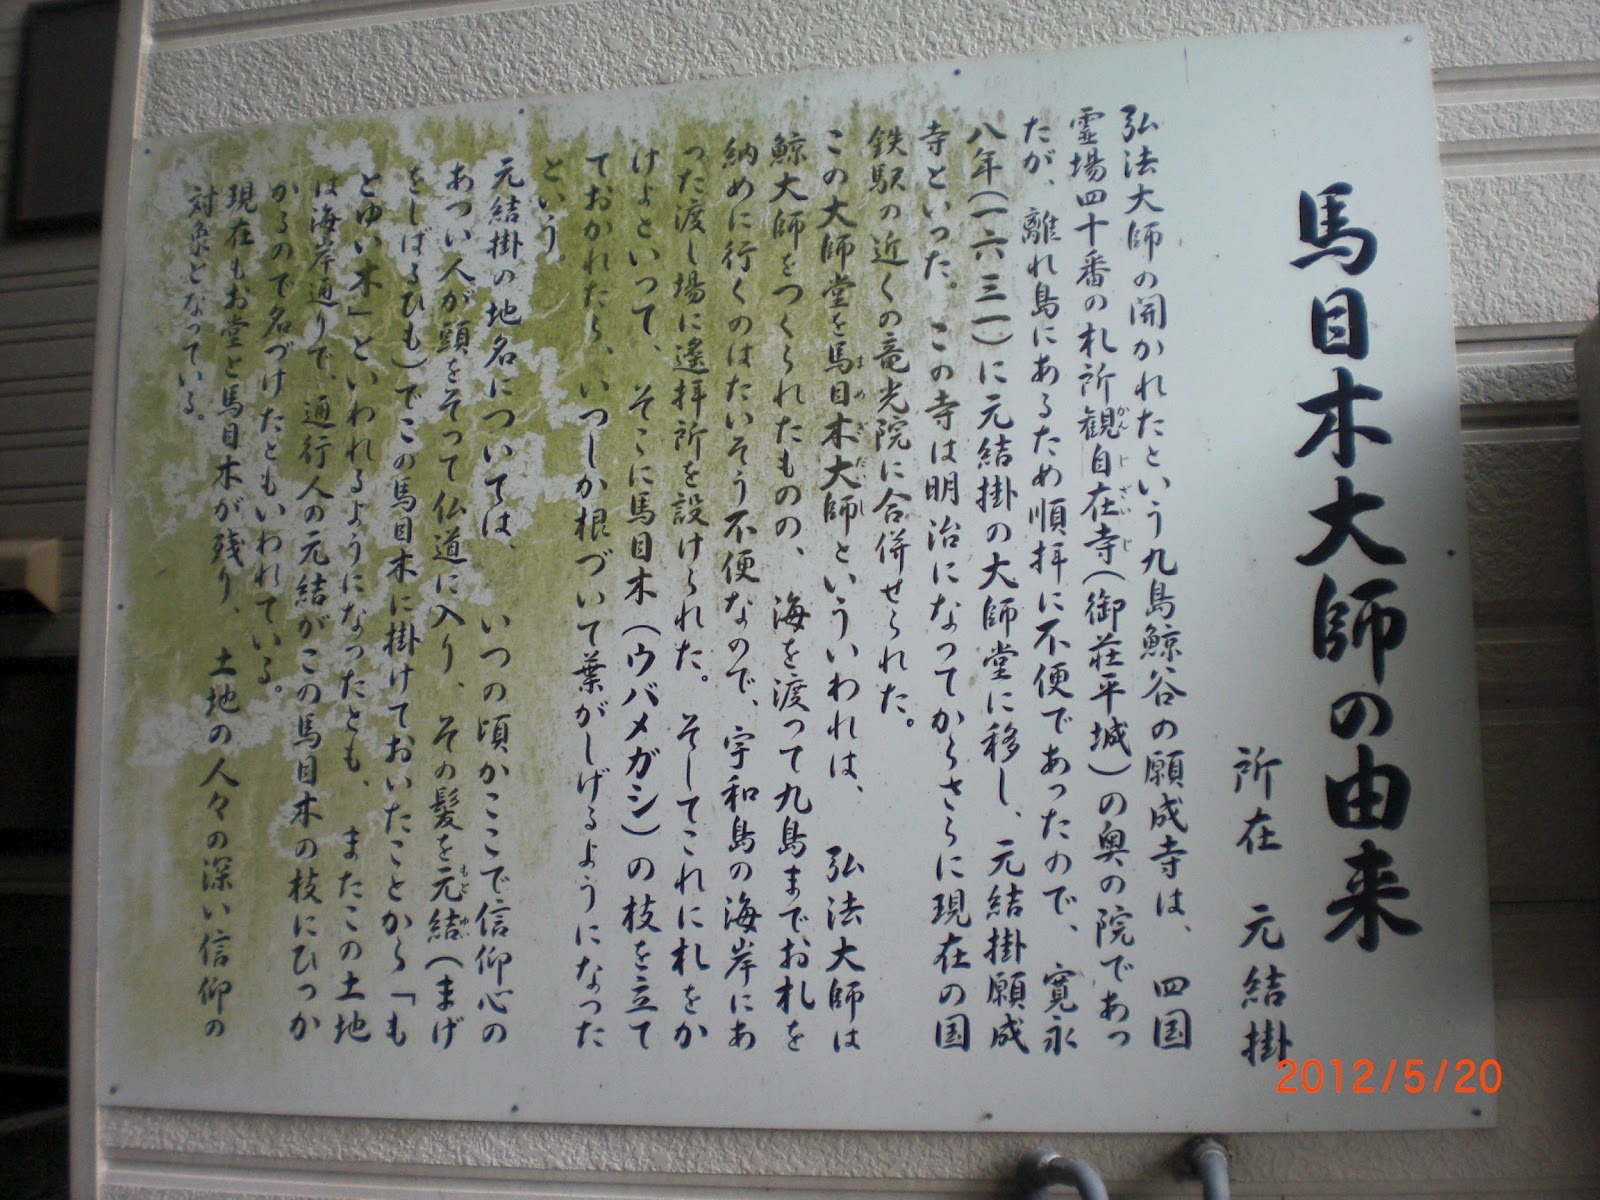 馬目木大師の由来
所在 元結掛
弘法大師の開かれたという九島鯨谷の願成寺は、四国
霊場四十番の札所観自在寺(御荘平城)の奥の院であっ
たが、離れ島にあるため順拝に不便であったので、寛永
八年(一六三一)に元結掛の大師堂に移し、元結掛願成
寺といった。この寺は明治になってからさらに現在の国
鉄駅の近くの竜光院に合併せられた。
この大師堂を馬目木大師といういわれは、弘法大師は
鯨大師をつくられたものの、海を渡って九島までお札を
納めに行くのはたいそう不便なので、宇和島の海岸にあ
った渡し場に遙拝所を設けられた。そしてこれに札をか
けよといって、そこに馬目木(ウバメガシ)の枝を立て
ておかれたら、いつしか根づいて葉がしげるようになった
という。
元結掛の地名については、いつの頃かここで信仰心の
あつい人が頭をそって仏道に入り、その髪を元結(まげ
をしばるひも)でこの馬目木に掛けておいたことから「も
とゆい木」といわれるようになったとも、またこの土地
は海岸通りで、通行人の元結がこの馬目木の枝にひっか
かるので名づけたともいわれている。
現在もお堂と馬目木が残り、土地の人々の深い信仰の
対象となっている。
2012/5/20